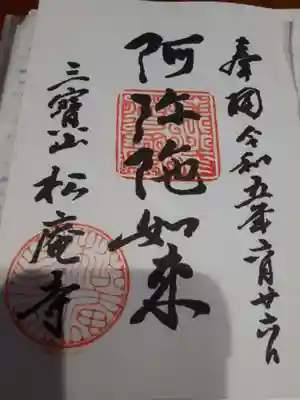 奉拝令和五年六月廿六日
阿弥陀如来
三寳山松庵寺